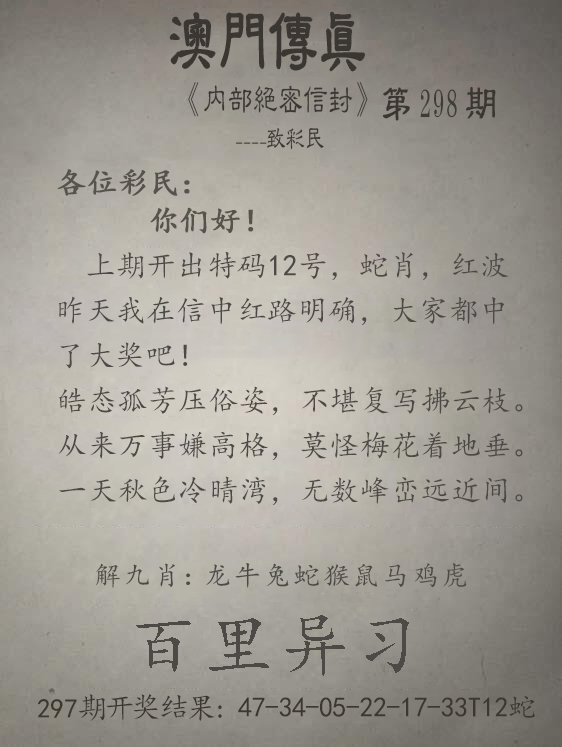 澳門傳真
《内部絕密信封》第298期
----致彩民
各位彩民：
你们好！
上期开出特码12号，蛇肖，红波
昨天我在信中红路明确，大家都中
了大奖吧！
皓态孤芳压俗姿，不堪复写拂云枝。
从来万事嫌高格，莫怪梅花着地垂。
一天秋色冷晴湾，无数峰峦远近间。
解九肖：龙牛兔蛇猴鼠马鸡虎
百里异习
297期开奖结果：47-34-05-22-17-33T12蛇